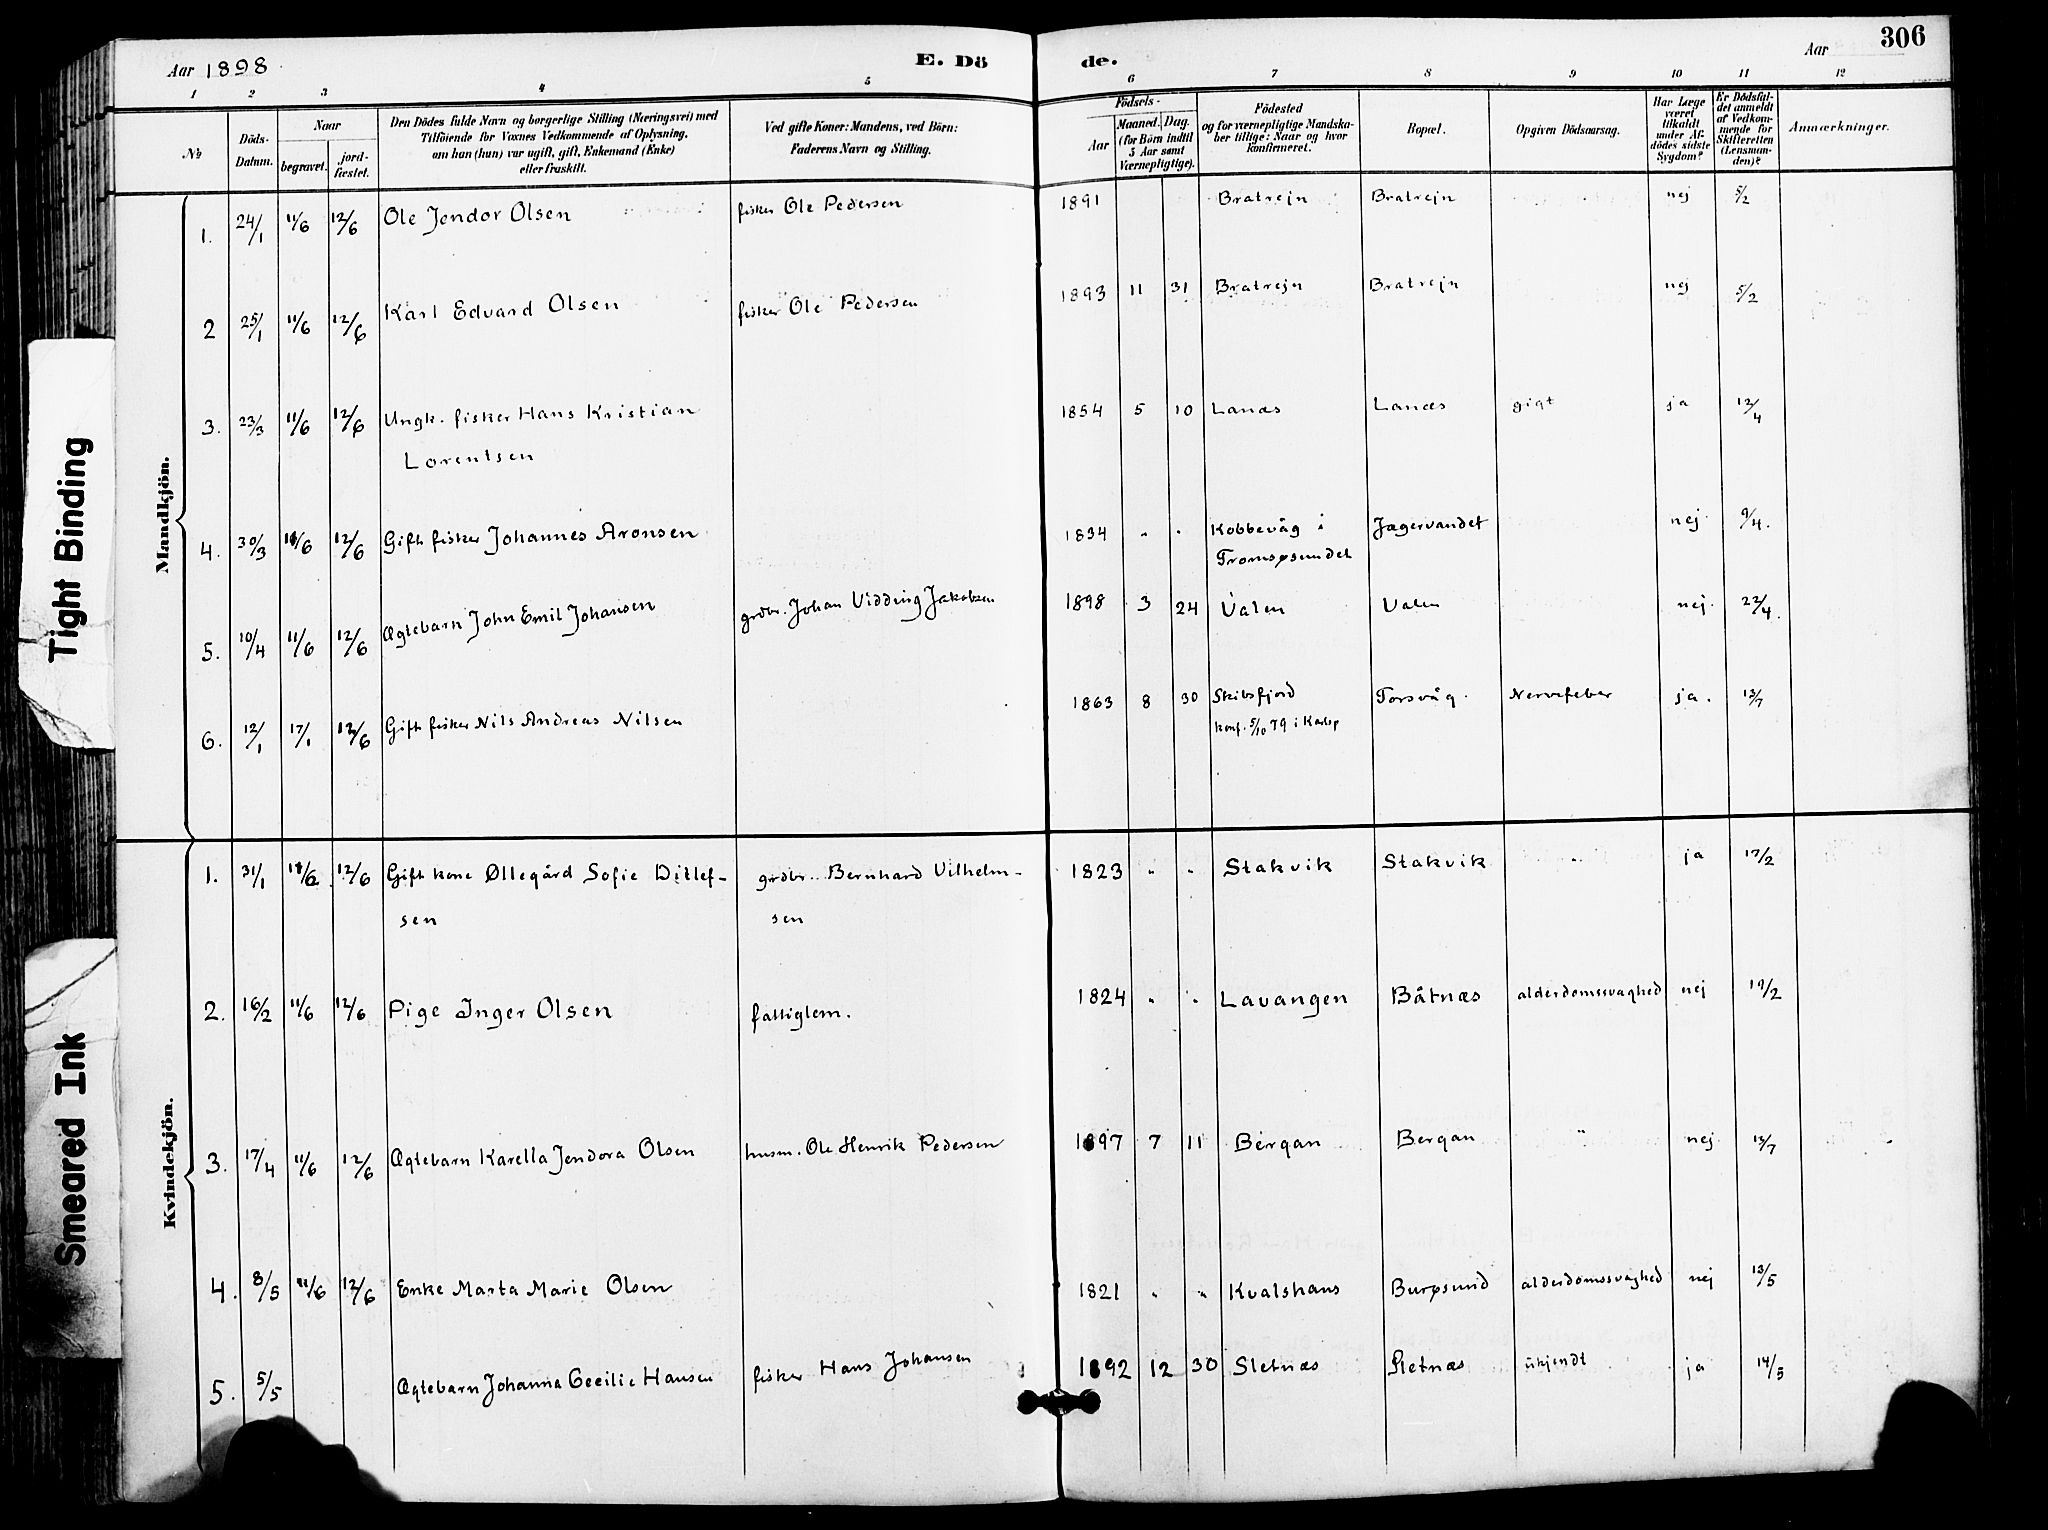 Aar 1898.
E. Dö
de.
Aar
306
1 2 3 4 5 6 7 8 9 10 11 12
No
Döds-Datum.
Naar
begravet.
jord-fæstet.
Den Dödes fulde Navn og borgerlige Stilling (Næringsvei) med
Tilföiende for Voxnes Vedkommende af Oplysning,
om han (hun) var ugift, gift, Enkemand (Enke)
eller fraskilt.
Ved gifte Koner: Mandens, ved Börn:
Faderens Navn og Stilling.
Födsels-
Aar
Maaned. Dag.
(for Börn indtil
5 Aar samt
Værnepligtige).
Födested
og for værnepligtige Mandska-
ber tillige: Naar og hvor
konfirmeret.
Bopæl.
Opgiven Dödsaarsag.
Har Læge
været
tilkaldt
under Af-
dödes sidste
Sygdom?
Er Dödsfal-
det anmeldt
af Vedkom-
mende for
Skifteretten
(Lensman-
den)?
Anmærkninger.
Mandkjön.
1. 24/1 11/6 12/6 Ole Jendor Olsen fisker Ole Pedersen 1891 Bratrejn Bratrejn nej 5/2
2 25/1 11/6 12/6 Karl Edvard Olsen fisker Ole Pedersen 1893 11 31 Bratrejn Bratrejn nej 5/2
3. 23/3 11/6 12/6 Ungk. fisker Hans Kristian 1854 5 10 Lanæs Lanæs gigt ja 12/4
Lorentsen
4. 30/3 11/6 12/6 Gift fisker Johannes Aronsen 1834 " " Kobbevåg i Jægervandet nej 9/4.
Tromsøsundet
5. 10/4 11/6 12/6 Ægtebarn John Emil Johansen grdbr. Johan Vidding Jakobsen 1898 3 24 Valen Valen nej 22/4.
6. 12/1 17/1 12/6 Gift fisker Nils Andreas Nilsen 1863 8 30 Skibsfjord Torsvåg. Nervefeber ja. 13/7
konf. 5/10 79 i Karlsø
Kvindekjön.
1. 31/1 11/6 12/6 Gift kone Øllegård Sofie Ditlef- grdbr. Bernhard Vilhelm- 1823 " " Stakvik Stakvik " ja 17/2
sen sen
2. 16/2 11/6 12/6 Pige Inger Olsen fattiglem. 1824 " " Lavangen Båtnæs alderdomssvaghed nej 19/2
3. 17/4 11/6 12/6 Ægtebarn Karella Jendora Olsen husm. Ole Henrik Pedersen 1897 7 11 Bergan Bergan " nej 13/7
4. 8/5 11/6 12/6 Enke Marta Marie Olsen 1821 " " Kvalshaus Burøsund alderdomssvaghed nej 13/5
5. 5/5 Ægtebarn Johanna Cecilie Hansen fisker Hans Johansen 1892 12 30 Sletnæs Sletnæs ukjendt ja 14/5
Tight Binding
Smeared Ink